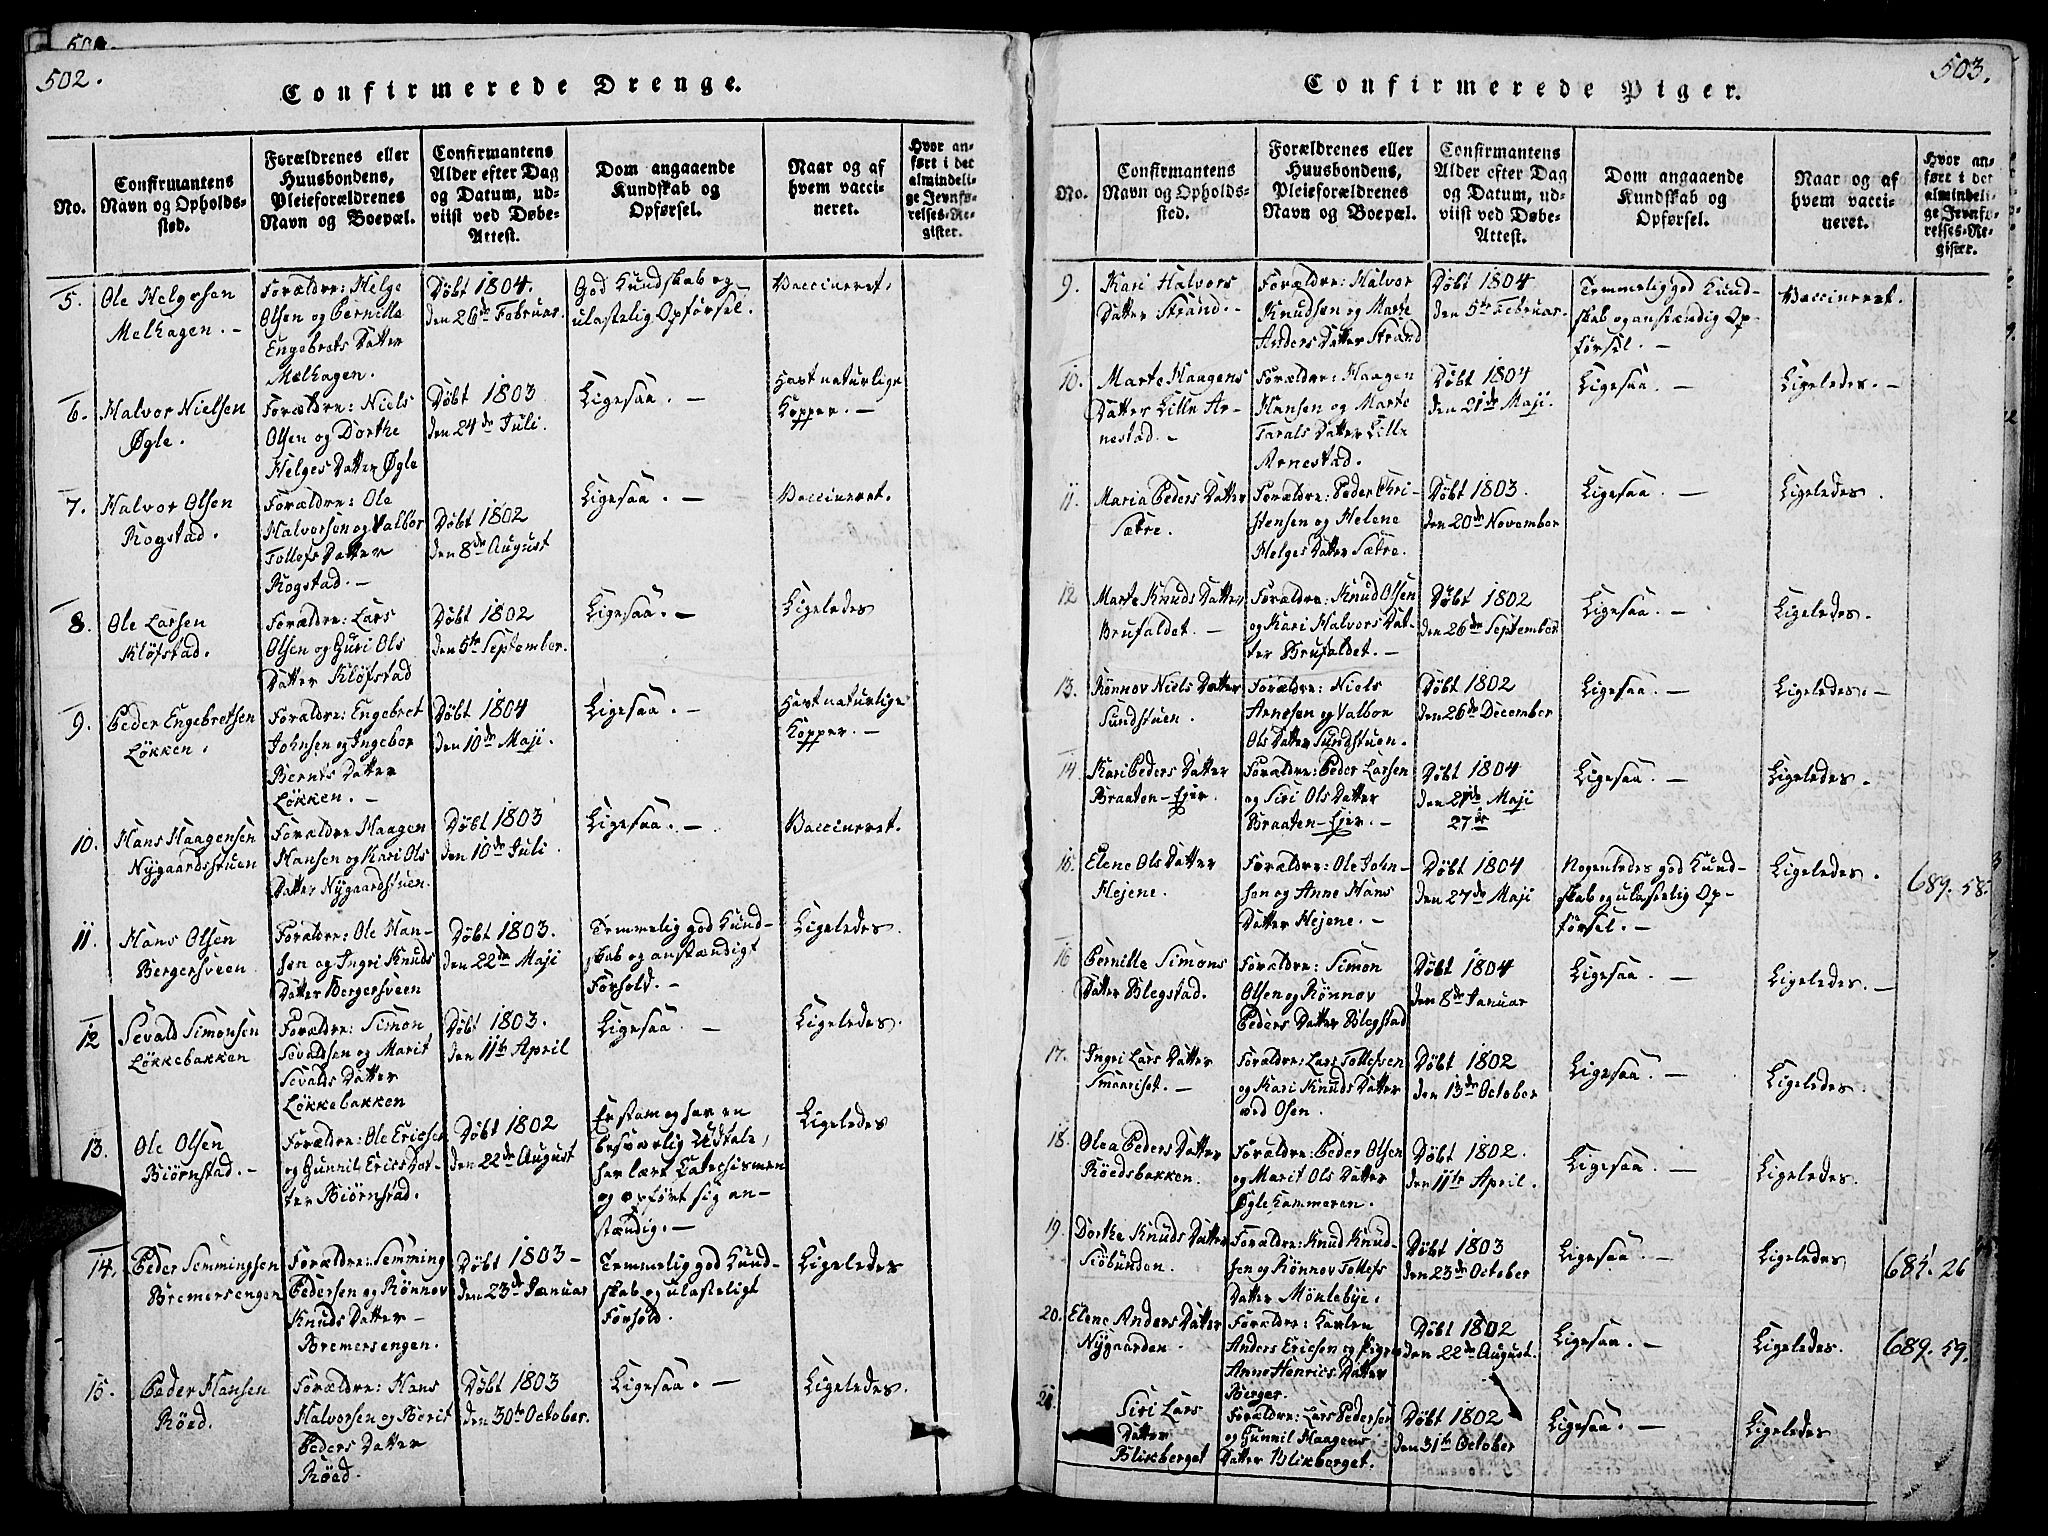 502.
Confirmerede Drenge.
No.
Confirmantens
Navn og Opholds-
sted.
Forældrenes eller
Huusbondens,
Pleieforældrenes
Navn og Boepæl.
Confirmantens
Alder efter Dag
og Datum, ud-
viist ved Døbe-
Attest.
Dom angaaende
Kundskab og
Opførsel.
Naar og af
hvem vacci-
neret.
Hvor an-
ført i det
almindeli-
ge Jevnfø-
relses-Re-
gister.
5.
Ole Helgesen
Melhagen. -
Forældre: Helge
Olsen og Pernille
Engebrets Datter
Melhagen.
Døbt 1804.
den 26de Februar.
God Kundskab og
ulastelig Opførsel.
Vaccineret.
6.
Halvor Nielsen
Øgle.
Forældre: Niels
Olsen og Dorthe
Helges Datter Øgle
Døbt 1803
den 24de Juli.
Ligesaa. -
Havt naturlige
Kopper. -
7.
Halvor Olsen
Rogstad.
Forældre: Ole
Halvorsen og Valbor
Tollefs Datter
Rogstad. -
Døbt 1802
den 8de August
Ligesaa. -
Vaccineret.
8.
Ole Larsen
Kløfstad.
Forældre: Lars
Olsen og Guri Ols
Datter Kløfstad
Døbt 1802
den 5te September.
Ligesaa. -
Ligeledes
9.
Peder Engebretsen
Løkken.
Forældre: Engebret
Johnsen og Ingebor
Bernts Datter
Løkken. -
Døbt 1804
den 10de Maji.
Ligesaa. -
Havt naturlige
Kopper. -
10.
Hans Haagensen
Nygaardstuen
Forældre Haagen
Hansen og Kari Ols
Datter Nygaardstuen.
Døbt 1803
den 10de Juli
Ligesaa. -
Vaccineret.
11.
Hans Olsen
Bergersveen
Forældre: Ole Han-
sen og Ingri Knuds
Datter Bergersveen
Døbt 1803.
den 22de Maji
Temmelig god Kund-
skab og anstændigt
Forhold. -
Ligeledes.
12
Sevald Simonsen
Løkkebakken
Forældre: Simon
Sevaldsen og Marit
Sevalds Datter
Løkkebakken
Døbt 1803.
den 11te April
Ligesaa. -
Ligeledes.
13.
Ole Olsen
Biørnstad. -
Forældre: Ole Ericsen
og Gunnil Erics Dat-
ter Biørnstad.
Døbt 1802
den 22de August
Er stam og har en
besværlig Udtale,
har lært Catechismen
og opført sig an-
stændig. -
Ligeledes
14.
Peder Semmingsen
Bremersengen
Forældre: Semming
Pedersen og Rønnov
Knuds Datter -
Bremersengen.
Døbt 1803 -
den 23de Januar
Temmelig god Kund-
skab og ulasteligt
Forhold.
Ligeledes
15.
Peder Hansen
Røed.
Forældre: Hans
Halvorsen og Berit
Peders Datter
Røed.
Døbt 1803
den 30te October.
Ligesaa. -
Ligeledes.
503.
Confirmerede Piger.
No.
Confirmantens
Navn og Opholds-
sted.
Forældrenes eller
Huusbondens,
Pleieforældrenes
Navn og Boepæl.
Confirmantens
Alder efter Dag
og Datum, ud-
viist ved Døbe-
Attest.
Dom angaaende
Kundskab og
Opførsel.
Naar og af
hvem vacci-
neret.
Hvor an-
ført i det
almindeli-
ge Jevnfø-
relses-Re-
gister.
9.
Kari Halvors
Datter Strand. -
Forældre: Halvor
Knudsen og Marte
Anders Datter Strand
Døbt 1804
den 5te Februar.
Temmelig god Kund-
skab og anstændig Op-
førsel. -
Vaccineret.
10.
Marte Haagens
Datter Lille Ar-
nestad. -
Forældre: Haagen
Hansen og Marte
Tarals Datter Lille
Arnestad.
Døbt 1804
den 21de Maji.
Ligesaa. -
Ligeledes. -
11.
Maria Peders Datter
Sætre.
Forældre: Peder Chri-
stensen og Helene
Helges Datter Sætre.
Døbt 1803.
den 20de November
Ligesaa. -
Ligeledes.
12
Marte Knuds Datter
Brufaldet. -
Forældre: Knud Olsen
og Kari Halvors Dat-
ter Brufaldet. -
Døbt 1802
den 26de September
Ligesaa. -
Ligeledes.
13.
Rønnov Niels Datter
Sundstuen.
Forældre: Niels
Arnesen og Valbor
Ols Datter Sundstuen.
Døbt 1802
den 26de December
Ligesaa. -
Ligeledes. -
14.
Kari Peders Datter
Braaten-Ejer.
Forældre: Peder Larsen
og Siri Ols Datter
Braaten-Ejer. -
Døbt 1804
den 21de Maji
27de
Ligesaa. -
Ligeledes.
15.
Elene Ols Datter
Hejene.
Forældre: Ole John-
sen og Anne Hans
Datter Hejene. -
Døbt 1804
den 27de Maji
Nogenledes god Kund-
skab og ulastelig Op-
førsel. -
Ligeledes.
689. 58.
16
Pernille Simons
Datter Blegstad.
Forældre: Simon
Olsen og Rønnov
Peders Datter Blegstad
Døbt 1804
den 8de Januar
Ligesaa. -
Ligeledes. -
17.
Ingri Lars Datter
Smaariset. -
Forældre: Lars Tollefsen
og Kari Knuds Datter
ved Osen.
Døbt 1802
den 13de October
Ligesaa. -
Ligeledes.
18.
Olea Peders Datter
Røedsbakken.
Forældre: Peder Olsen
og Marit Ols Datter
Øgle Kammeren.
Døbt 1802.
den 11te April.
Ligesaa. -
Ligeledes.
19.
Dorthe Knuds Datter
Siøbunden.
Forældre: Knud Knud-
sen og Rønnov Tollefs
Datter Mønlebye.
Døbt 1803
den 23de October
Ligesaa. -
Ligeledes
685. 26
20.
Elene Anders Datter
Nygaarden.
Forældre: Karlen
Anders Ericsen og Pigen
Anne Henrics Datter
Berger.
Døbt 1802
den 22de August.
Ligesaa. -
Ligeledes.
689. 59.
21.
Siri Lars
Datter
Blikberget
Forældre: Lars Pedersen
og Gunnil Haagens
Datter Blikberget.
Døbt 1802
den 31te October
Ligesaa. -
Ligeledes.